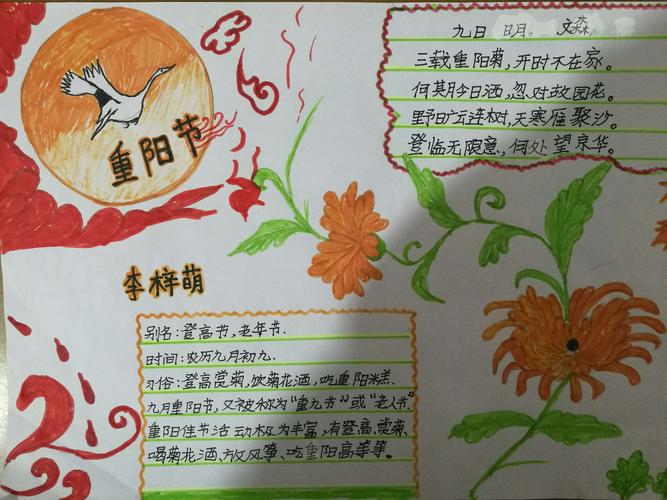 重阳节
九日 明 文森
三载重阳菊,开时不在家。
何其今日酒,忽对故园花。
野旷云连树,天寒雁聚沙。
登临无限意,何处望京华。
李梓萌
别名:登高节,老年节.
时间:农历九月初九.
习俗:登高赏菊,饮菊花酒,吃重阳糕.
九月重阳节,又被称为“重九节”或“老人节”.
重阳佳节活动极为丰富,有登高、赏菊、
喝菊花酒、放风筝、吃重阳高等等。